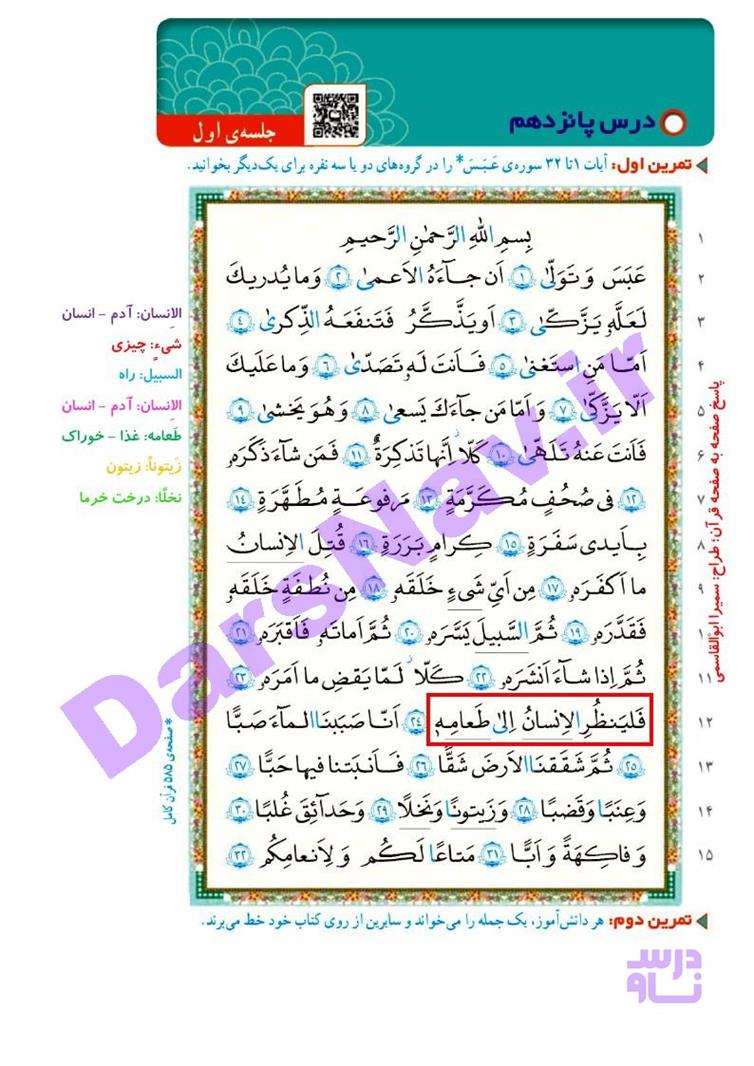 درس پانزدهم
جلسه‌ی اول
تمرین اول: آیات ۱ تا ۳۲ سوره‌ی عَبَسَ* را در گروه‌های دو یا سه نفره برای یک‌دیگر بخوانید.
۱ بِسمِ اللهِ الرَّحمٰنِ الرَّحیمِ
۲ عَبَسَ وَ تَوَلّىٰ ۱ اَن جاۤءَهُ الاَعمىٰ ۲ وَ ما يُدريكَ
۳ لَعَلَّهٗ يَزَّكّىٰ ۳ اَو يَذَّكَّرُ فَتَنفَعَهُ الذِّكرىٰ ۴
۴ اَمّا مَنِ استَغنىٰ ۵ فَاَنتَ لَهٗ تَصَدّىٰ ۶ وَ ما عَلَيكَ
۵ اَلّا يَزَّكّىٰ ۷ وَ اَمّا مَن جاۤءَكَ يَسعىٰ ۸ وَ هُوَ يَخشىٰ ۹
۶ فَاَنتَ عَنهُ تَلَهّىٰ ۱۰ كَلّاۤ اِنَّها تَذكِرَةٌ ۱۱ فَمَن شاۤءَ ذَكَرَهٗ
۷ ۱۲ فى صُحُفٍ مُكَرَّمَةٍ ۱۳ مَرفوعَةٍ مُطَهَّرَةٍ ۱۴
۸ بِاَيدى سَفَرَةٍ ۱۵ كِرامٍ بَرَرَةٍ ۱۶ قُتِلَ الاِنسانُ
۹ ماۤ اَكفَرَهٗ ۱۷ مِن اَىِّ شَىءٍ خَلَقَهٗ ۱۸ مِن نُطفَةٍ خَلَقَهٗ
۱۰ فَقَدَّرَهٗ ۱۹ ثُمَّ السَّبيلَ يَسَّرَهٗ ۲۰ ثُمَّ اَماتَهٗ فَاَقبَرَهٗ ۲۱
۱۱ ثُمَّ اِذا شاۤءَ اَنشَرَهٗ ۲۲ كَلّا لَمّا يَقضِ ماۤ اَمَرَهٗ ۲۳
۱۲ فَليَنظُرِ الاِنسانُ اِلىٰ طَعامِهٖ ۲۴ اَنّا صَبَبنَا الماۤءَ صَبًّا
۱۳ ۲۵ ثُمَّ شَقَقنَا الاَرضَ شَقًّا ۲۶ فَاَنبَتنا فيها حَبًّا ۲۷
۱۴ وَ عِنَبًا وَ قَضبًا ۲۸ وَ زَيتونًا وَ نَخلًا ۲۹ وَ حَداۤئِقَ غُلبًا ۳۰
۱۵ وَ فاكِهَةً وَ اَبًّا ۳۱ مَتاعًا لَكُم وَ لِاَنعامِكُم ۳۲
الانسان: آدم – انسان
شیءٍ: چیزی
السبیل: راه
الانسان: آدم – انسان
طَعامه: غذا – خوراک
زَیتوناً: زیتون
نخلًا: درخت خرما
* صفحه‌ی ۵۸۵ قرآن کامل
پاسخ صفحه به صفحه قرآن: طراح: سمیرا ابوالقاسمی
تمرین دوم: هر دانش‌آموز، یک جمله را می‌خواند و سایرین از روی کتاب خود خط می‌برند.
DarsNav.ir
درس
ناو